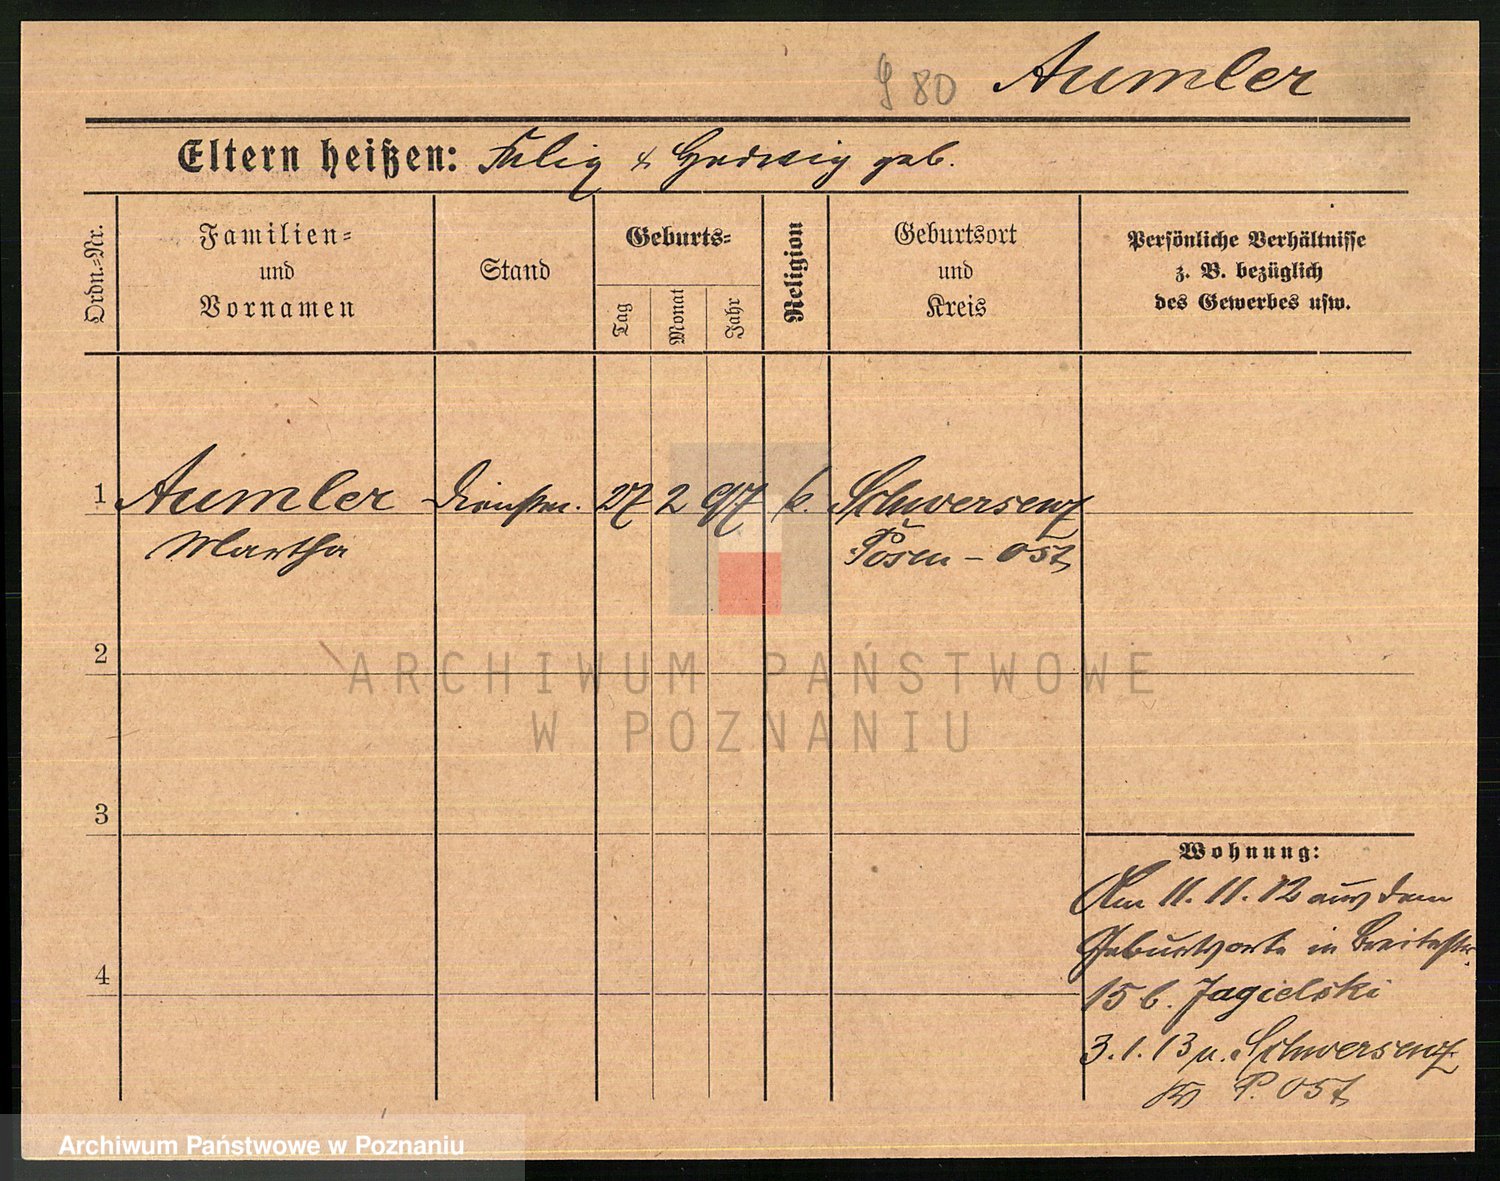 80 Aumler
Eltern heißen: Felix & Hedwig geb.
Ordn.=Nr.
Familien=
und
Vornamen
Stand
Geburts=
Tag
Monat
Jahr
Religion
Geburtsort
und
Kreis
Persönliche Verhältnisse
z. B. bezüglich
des Gewerbes usw.
1 Aumler Dienstm. 27 2 97 k. Schwersenz
Martha Posen - Ost
2
3
4
Wohnung:
Am 11. 11. 12 aus dem
Geburtsorte in Breitestr.
15 b. Jagielski
3. 1. 13 n. Schwersenz
P. Ost
ARCHIWUM PAŃSTWOWE
W POZNANIU
Archiwum Państwowe w Poznaniu